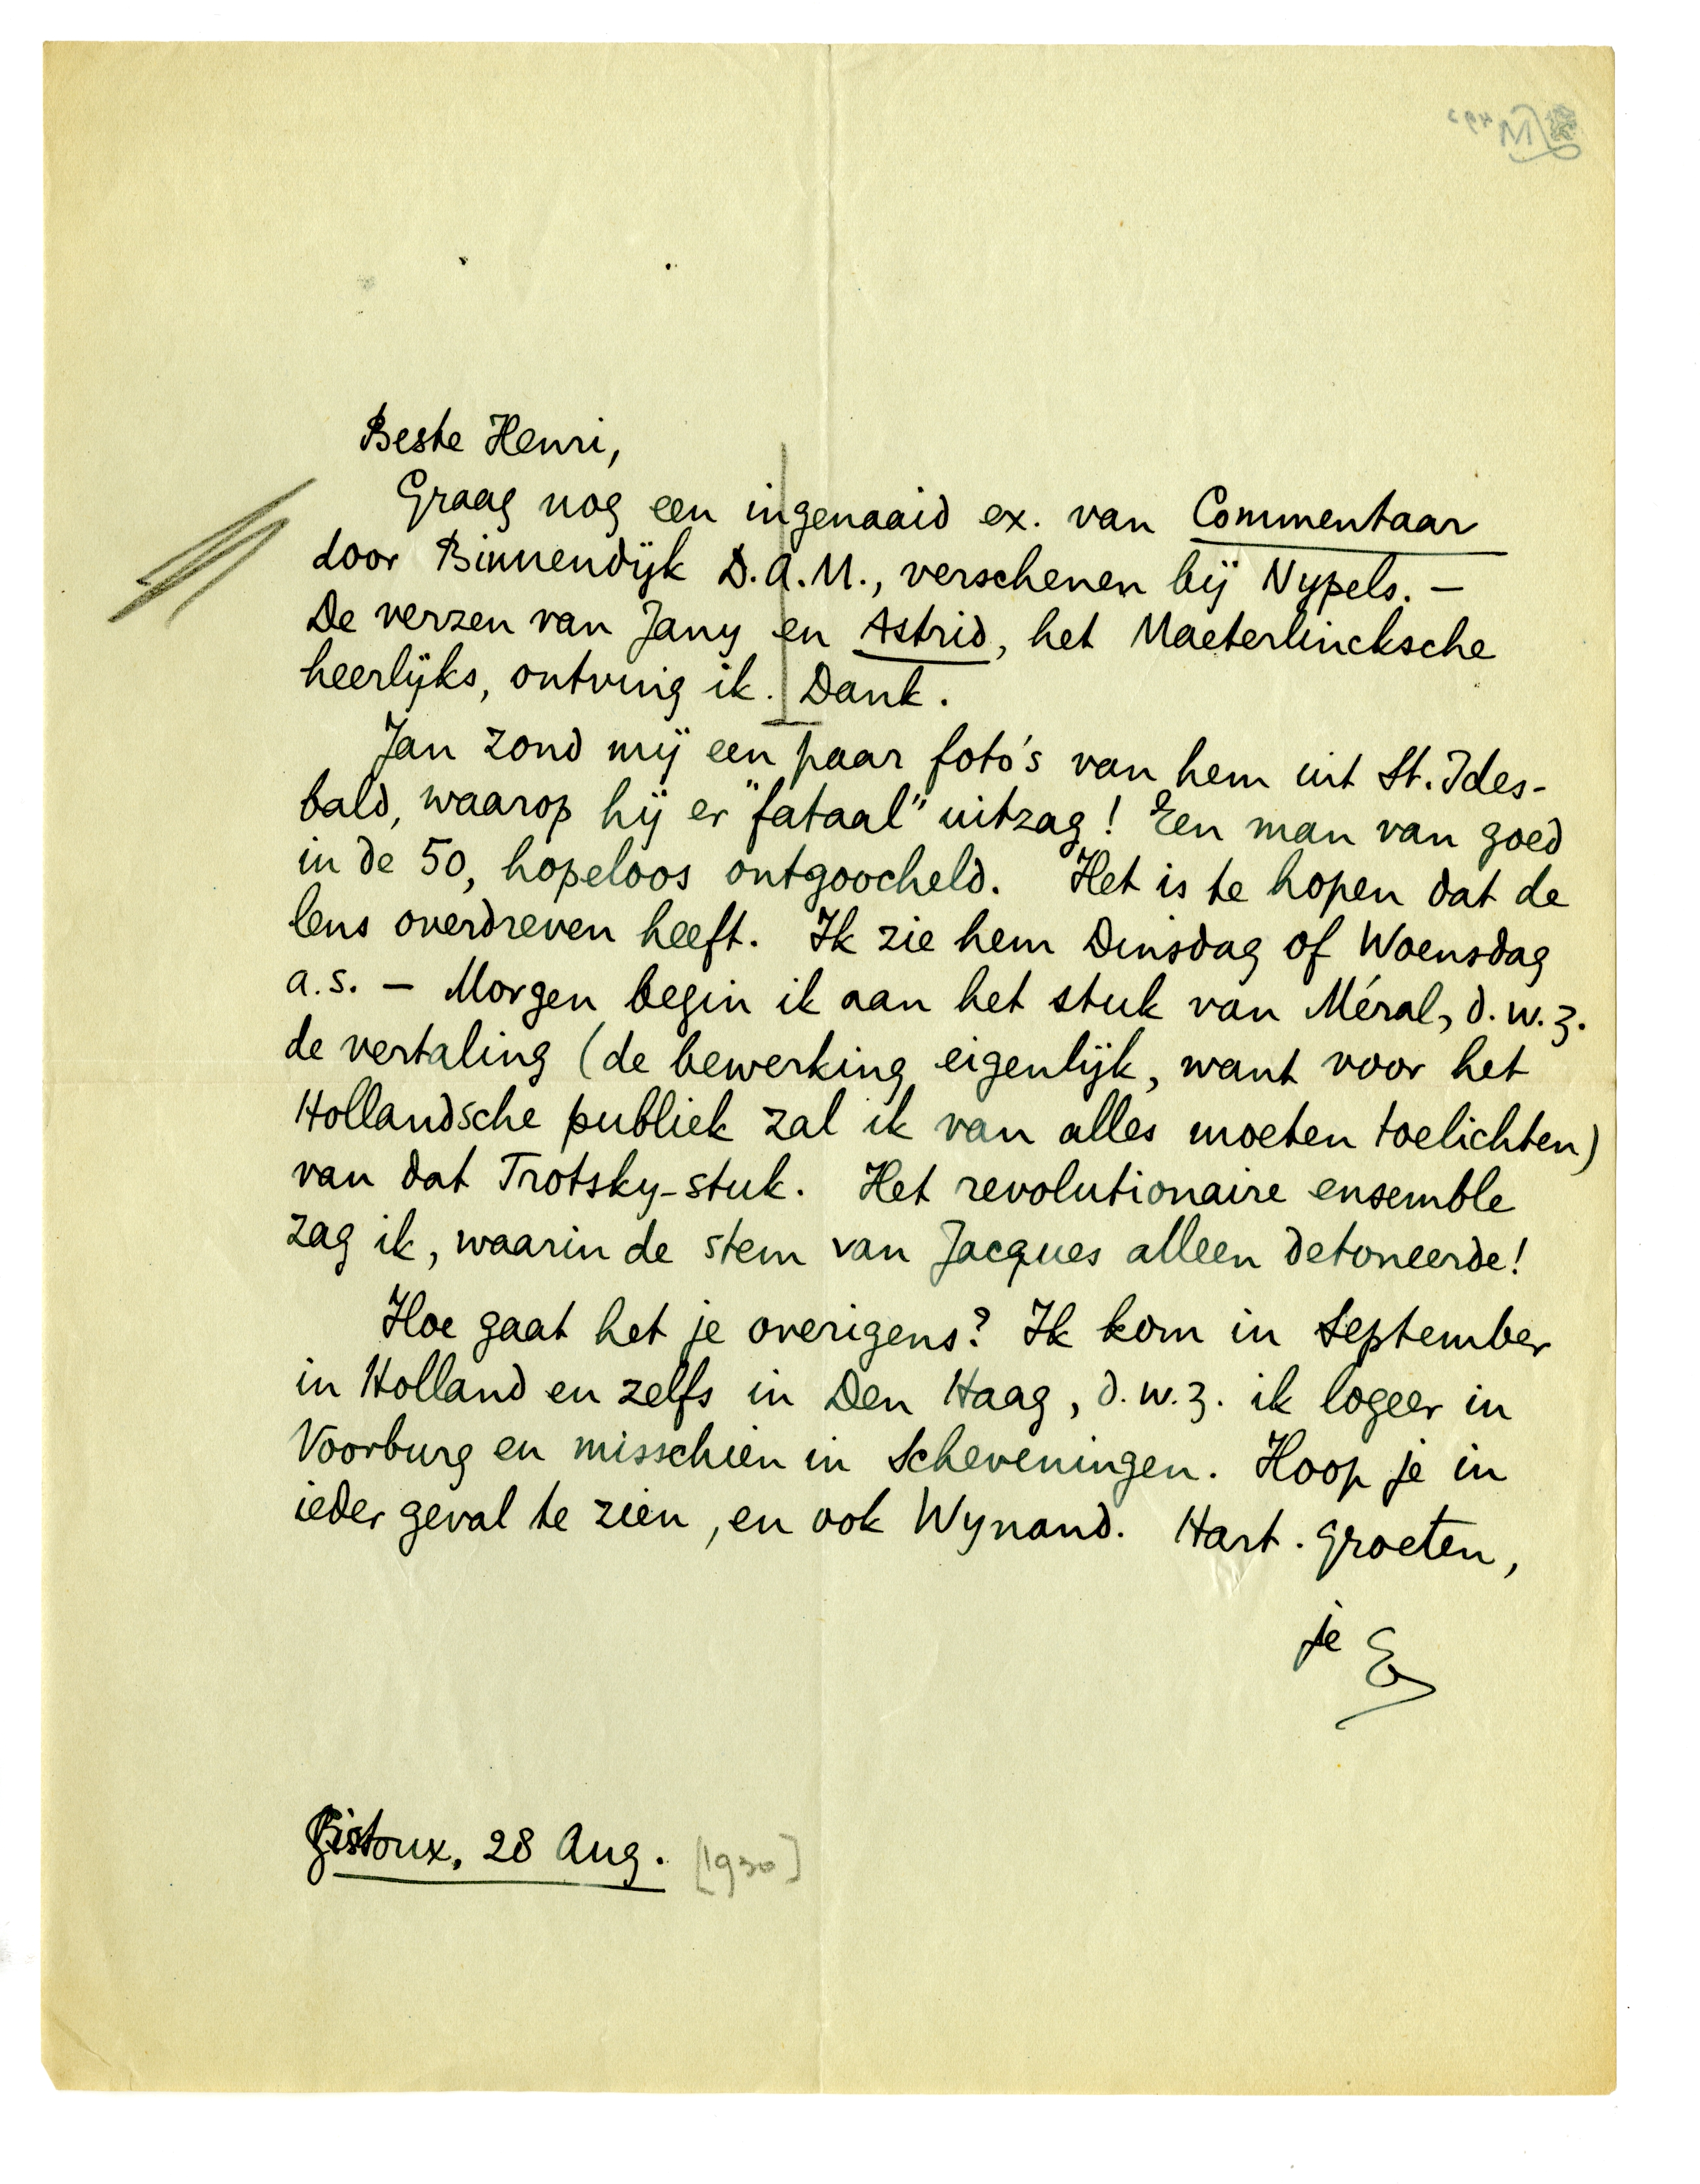 Beste Henri,
Graag nog een ingenaaid ex. van Commentaar
door Binnendijk D.A.M., verschenen bij Nypels. —
De verzen van Jany en Astrid, het Maeterlincksche
heerlijks, ontving ik. Dank.
Jan zond mij een paar foto's van hem uit St. Ides-
bald, waarop hij er "fataal" uitzag! Een man van goed
in de 50, hopeloos ontgoocheld. Het is te hopen dat de
lens overdreven heeft. Ik zie hem Dinsdag of Woensdag
a.s. — Morgen begin ik aan het stuk van Méral, d.w.z.
de vertaling (de bewerking eigenlijk, want voor het
Hollandsche publiek zal ik van alles moeten toelichten)
van dat Trotsky-stuk. Het revolutionaire ensemble
zag ik, waarin de stem van Jacques alleen detoneerde!
Hoe gaat het je overigens? Ik kom in September
in Holland en zelfs in Den Haag, d.w.z. ik logeer in
Voorburg en misschien in Scheveningen. Hoop je in
ieder geval te zien, en ook Wynand. Hart. groeten,
je E
Gistoux, 28 Aug. [1930]